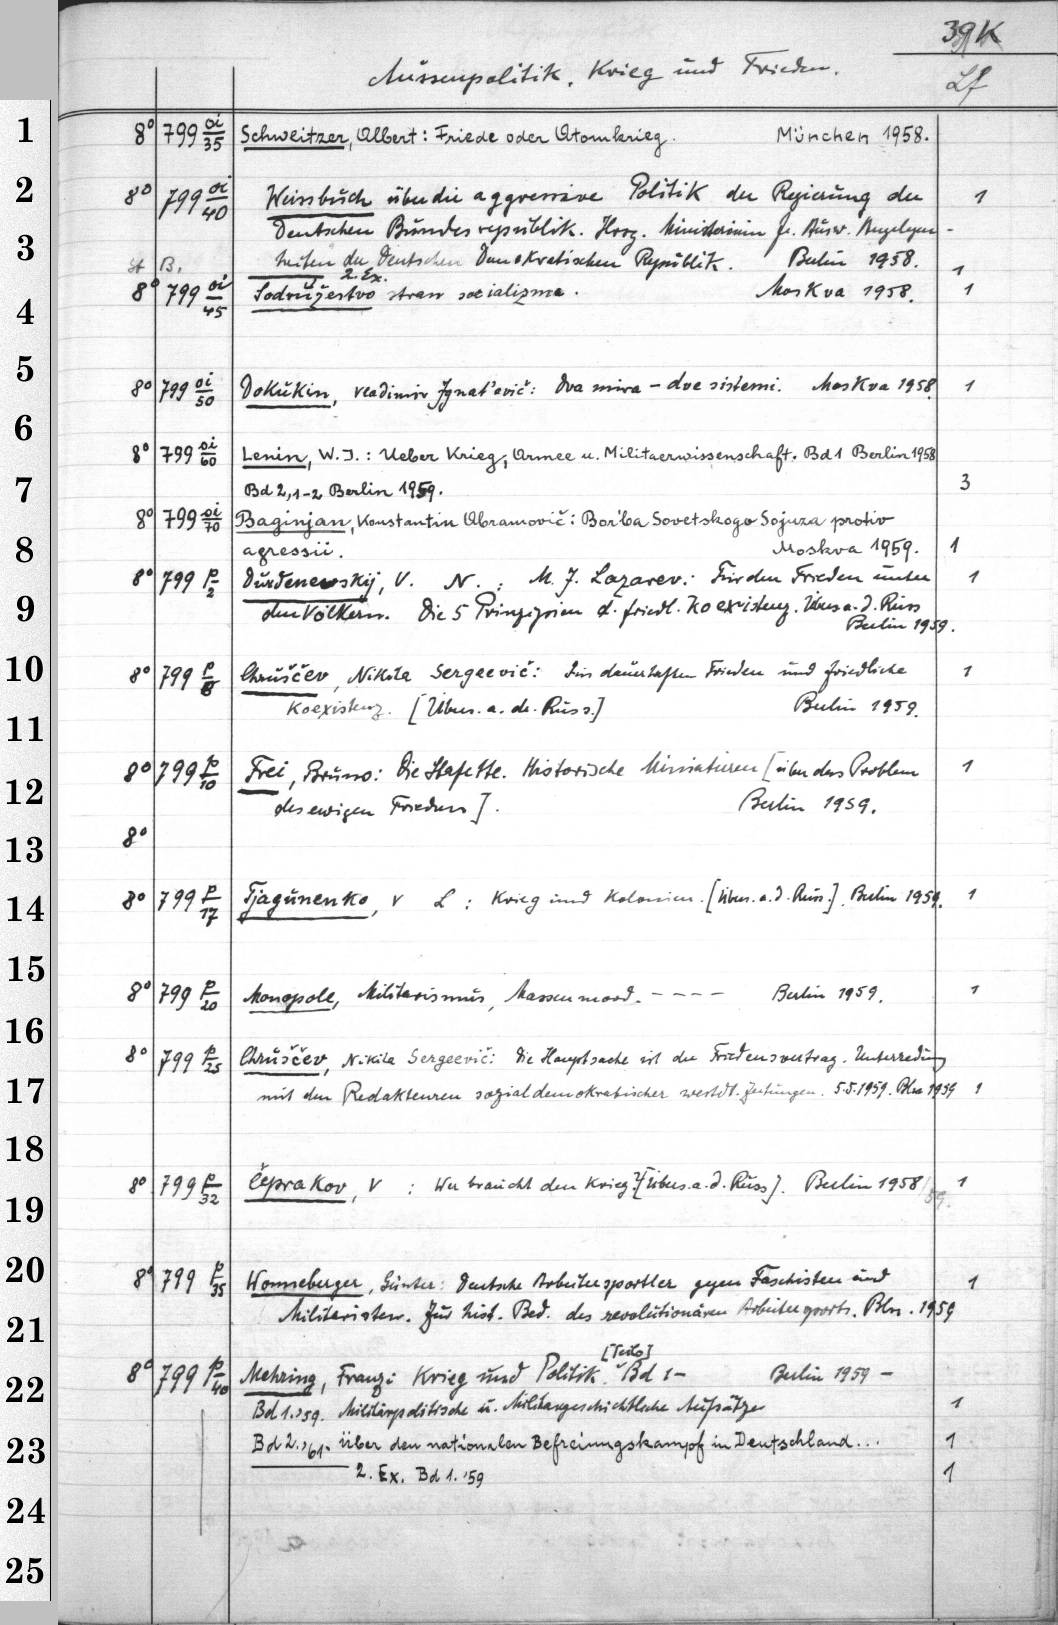 39K
Aussenpolitik. Krieg und Frieden.
Lf
1
8° 799 oi/35 Schweitzer, Albert: Friede oder Atomkrieg. München 1958.
2
8° 799 oi/40 Weissbuch über die aggressive Politik der Regierung der 1
Deutschen Bundesrepublik. Hrsg. Ministerium f. Ausw. Angelegen-
3
St B. heiten der Deutschen Demokratischen Republik. Berlin 1958.
2. Ex. 1
8° 799 oi/45 Sodružestvo stran socializma. Moskva 1958. 1
4
5
8° 799 oi/50 Dokukin, Vladimir Ignat'evič: Dva mira - dve sistemi. Moskva 1958. 1
6
8° 799 oi/60 Lenin, W. J.: Ueber Krieg, Armee u. Militaerwissenschaft. Bd 1 Berlin 1958
7
Bd 2, 1-2 Berlin 1959. 3
8° 799 oi/70 Baginjan, Konstantin Abramovič: Bor'ba Sovetskogo Sojuza protiv
8
agressii. Moskva 1959. 1
8° 799 p/2 Durdenewskij, V. N.; M. J. Lazarev: Für den Frieden unter 1
9
den Völkern. Die 5 Prinzipien d. friedl. Koexistenz. Übers. a. d. Russ
Berlin 1959.
10
8° 799 p/8 Chruščev, Nikita Sergeevič: Für dauerhaften Frieden und friedliche 1
Koexistenz. [Übers. a. d. Russ.] Berlin 1959.
11
8° 799 p/10 Frei, Bruno: Die Stafette. Historische Miniaturen [über das Problem 1
12
des ewigen Friedens]. Berlin 1959.
8°
13
8° 799 p/17 Tjagunenko, V L : Krieg und Kolonien. [Übers. a. d. Russ.]. Berlin 1959. 1
14
15
8° 799 p/20 Monopole, Militarismus, Massenmord. - - - - Berlin 1959. 1
16
8° 799 p/25 Chruščev, Nikita Sergeevič: Die Hauptsache ist der Friedensvertrag. Unterredung
17
mit den Redakteuren sozialdemokratischer westdt. Zeitungen. 5.5.1959. Bln 1959 1
18
8° 799 p/32 Čeprakov, V : Wer braucht den Krieg? [Übers. a. d. Russ]. Berlin 1958/59. 1
19
20
8° 799 p/35 Wonneberger, Günter: Deutsche Arbeitersportler gegen Faschisten und 1
21
Militaristen. Zur hist. Bed. des revolutionären Arbeitersports. Bln. 1959
[Teils]
22
8° 799 p/40 Mehring, Franz: Krieg und Politik. Bd 1- Berlin 1959 -
Bd 1. '59. Militärpolitische u. Militärgeschichtliche Aufsätze 1
23
Bd 2. '61. Über den nationalen Befreiungskampf in Deutschland... 1
2. Ex. Bd 1. '59 1
24
25